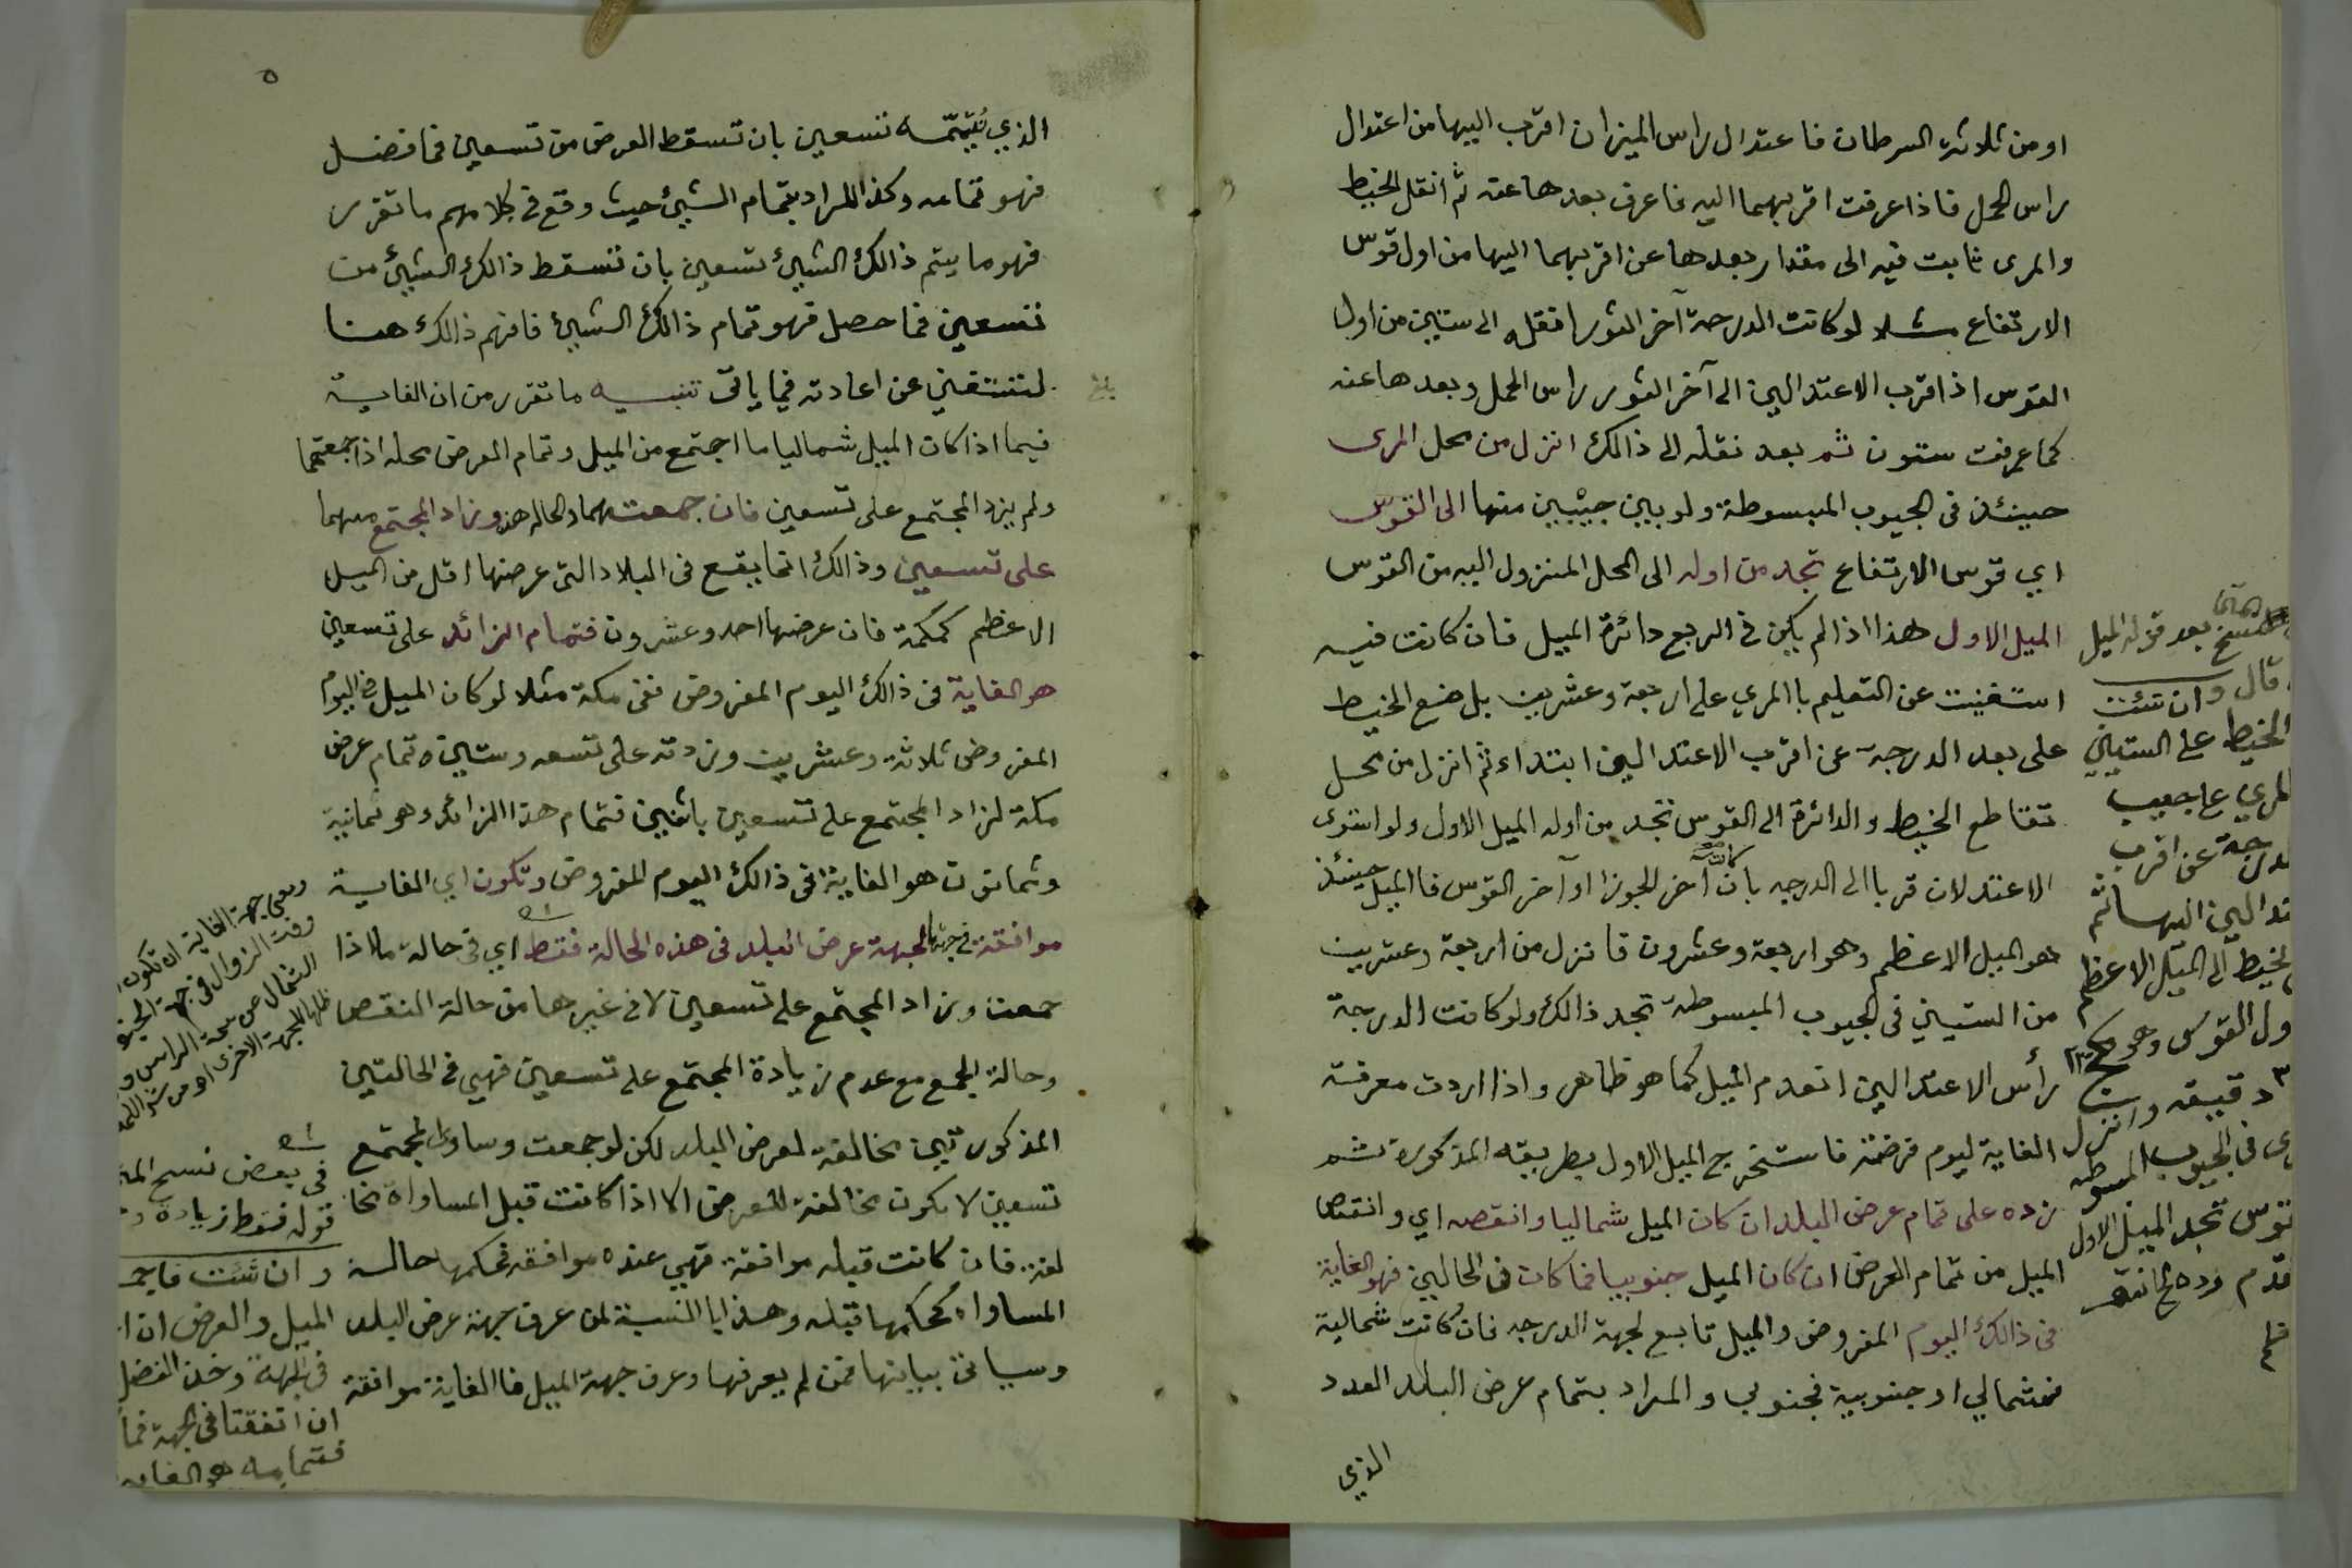 او من ثلاثة السرطان فاعتدال راس الميزان اقرب اليها من اعتدال
راس الحمل فاذا عرفت اقربهما اليه فاعرف بعدها عنه ثم انقل الخيط
والمرى ثابت فيه الى مقدار بعدها عن اقربهما اليها من اول قوس
الارتفاع مثلا لو كانت الدرجة آخر الثور انقله الى ستين من اول
القوس اذ اقرب الاعتدالين الى آخر الثور راس الحمل وبعدها عنه
كما عرفت ستون ثم بعد نقله الى ذالك انزل من محل المرى
حينئذ فى الجيوب المبسوطة ولو بين جيبين منها الى القوس
اي قوس الارتفاع تجد من اوله الى المحل المنزول اليه من القوس
الميل الاول هذا اذا لم يكن فى الربع دائرة الميل فان كانت فيه
استغنيت عن التعليم باالمري على اربعة وعشرين بل ضع الخيط
على بعد الدرجة عن اقرب الاعتدالين ابتداء ثم انزل من محل
تقاطع الخيط والدائرة الى القوس تجد من اوله الميل الاول ولو استوى
الاعتدلان قربا الى الدرجه بان كانت آخر الجوزا او آخر القوس فاالميل حينئذ
هو الميل الاعظم وهو اربعة وعشرون فانزل من اربعة وعشرين
من الستيني فى الجيوب المبسوطة تجد ذالك ولو كانت الدرجة
رأس الاعتدالين انعدم الميل كما هو ظاهر واذا اردت معرفة
الغاية ليوم فرضته فاستخرج الميل الاول بطريقه المذكورة ثم
زده على تمام عرض البلد ان كان الميل شماليا وانقصه اي وانقص
الميل من تمام العرض ان كان الميل جنوبيا فما كان فى الحالين فهو الغاية
فى ذالك اليوم المفروض والميل تابع لجهة الدرجه فان كانت شمالية
فشمالي او جنوبية فجنوبي والمراد بتمام عرض البلد العدد
الذي
بعد قوله الميل
قال وان شئت
الخيط على الستيني
المري على جيب
درجة عن اقرب
تدالين اليها ثم
الخيط الى الميل الاعظم
ول القوس وهو كج
دقيقه وانزل
فى الجيوب المبسوطه
قوس تجد الميل الاول
٥
الذي يُتمّمه تسعين بان تسقط العرض من تسعين فما فضل
فهو تمامه وكذا المراد بتمام الشيئ حيث وقع فى كلامهم ما تقرر
فهو ما يتم ذالك الشيئ تسعين بان تسقط ذالك الشيئ من
تسعين فما حصل فهو تمام ذالك الشيئ فافهم ذالك هنا
لتستغني عن اعادته فيما ياتى تنبيه ما تقرر من ان الغاية
فيما اذا كان الميل شماليا ما اجتمع من الميل وتمام العرض محله اذا جمعتهما
ولم يزد المجتمع على تسعين فان جمعتهما والحاله هذه وزاد المجتمع منهما
على تسعين وذالك انما يقع فى البلاد التى عرضها اقل من الميل
الاعظم كمكة فان عرضها احد وعشرون فتمام الزائد على تسعين
هو الغاية فى ذالك اليوم المفروض ففى مكة مثلا لو كان الميل فى اليوم
المفروض ثلاثة وعشرين وزدته على تسعه وستين تمام عرض
مكة لزاد المجتمع على تسعين باثنين فتمام هذا الزائد وهو ثمانية
وثمانون هو الغاية فى ذالك اليوم المفروض وتكون اي الغاية
موافقة فى جهتها لجهة عرض البلد فى هذه الحالة فقط اي فى حالة ما اذا
جمعت وزاد المجتمع على تسعين لا فى غيرها من حالة النقص
وحالة الجمع مع عدم زيادة المجتمع على تسعين فهي فى الحالتين
المذكورتين مخالفة لعرض البلد لكن لو جمعت وساوى المجتمع
تسعين لا يكون مخالفة للعرض الا اذا كانت قبل المساواة مخا
لفة فان كانت قبله موافقة فهي عنده موافقه فحكمها حالة
المساواة كحكمها قبله وهذا باالنسبة لمن عرف جهة عرض البلد
وسياتى بيانها فمن لم يعرفها وعرف جهة الميل فاالغاية موافقة
ومعنى جهة الغاية ان تكون
وقت الزوال فى جهة الجنو
الشمال عن سمت الراس و
فى بعض نسح
قوله فقط زيادة
وان شئت فاجمـ
الميل والعرض ان ا
فى الجهة وخذ الفضل
ان اتفقتا فى الجهة فما
فتمامه هو الغايه